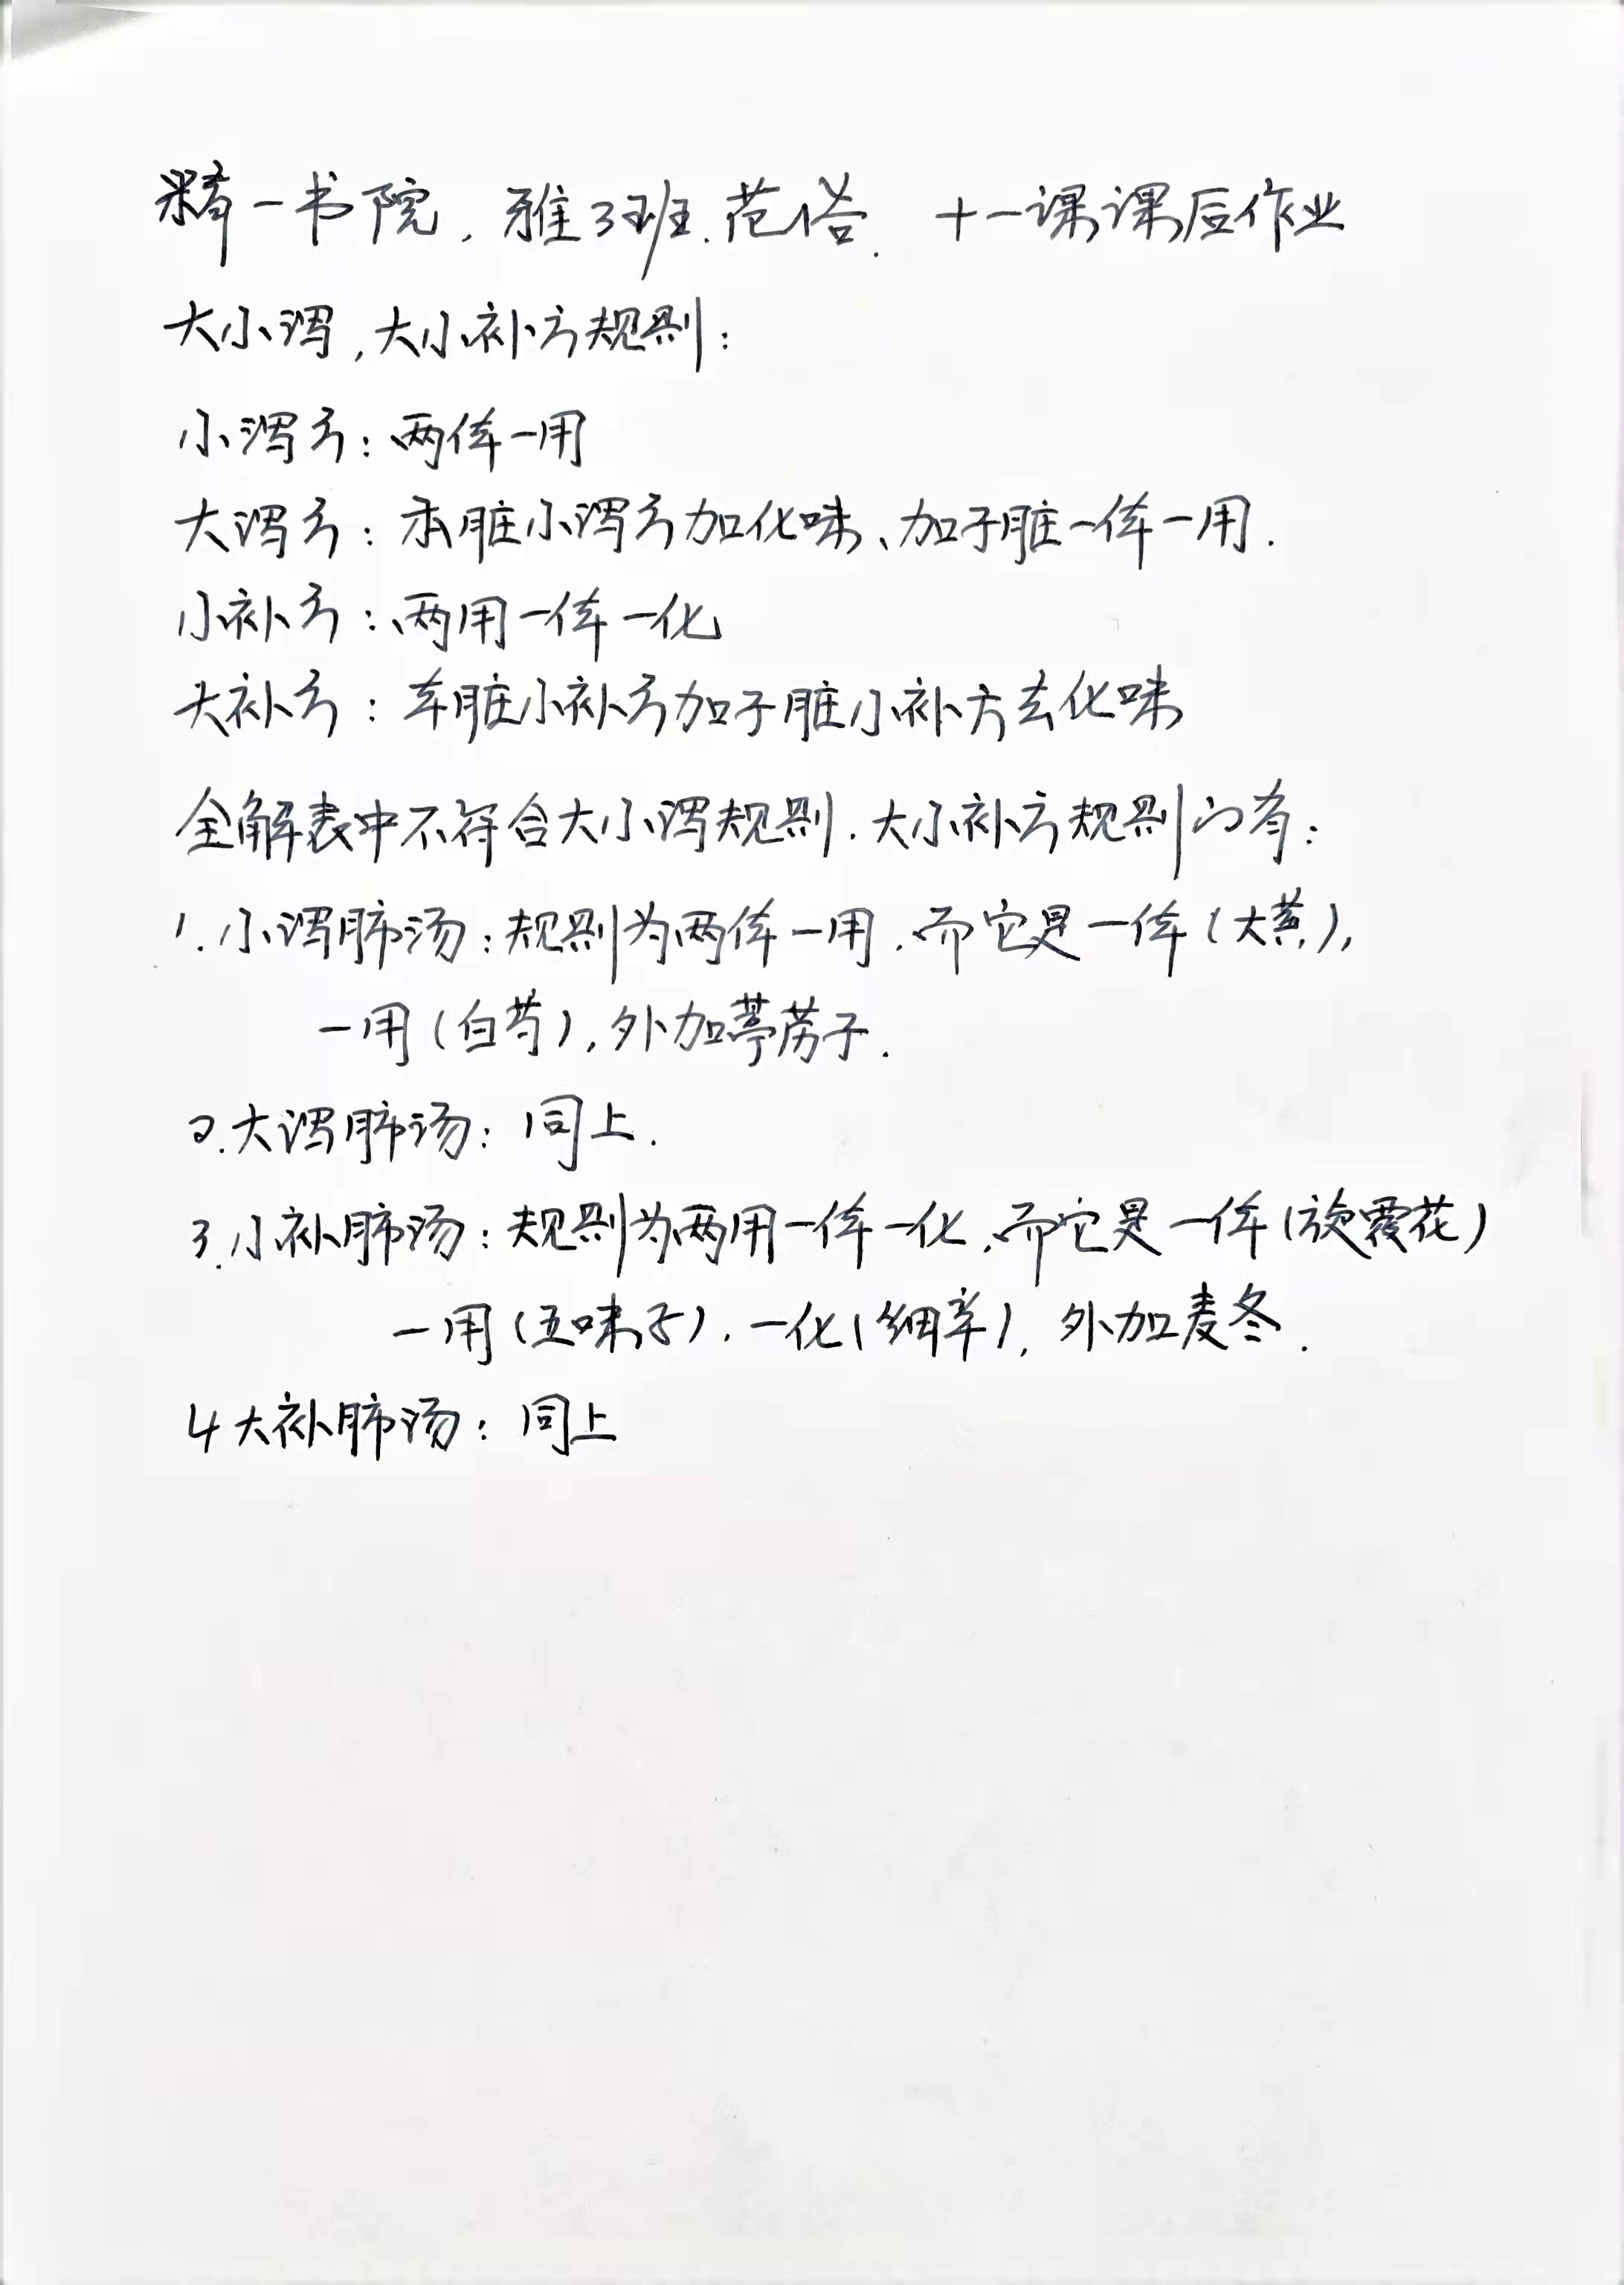 精一书院，雅3班.范俗. 十一课课后作业
大小泻,大小补方规则：
小泻方：两体一用
大泻方：本脏小泻方加化味、加子脏一体一用.
小补方：两用一体一化
大补方：本脏小补方加子脏小补方去化味
全解表中不符合大小泻规则.大小补方规则的有：
1.小泻肺汤：规则为两体一用.而它是一体(大黄),
一用(白芍),外加葶苈子.
2.大泻肺汤：同上.
3.小补肺汤：规则为两用一体一化,而它是一体(旋覆花)
一用(五味子).一化(细辛),外加麦冬.
4大补肺汤：同上